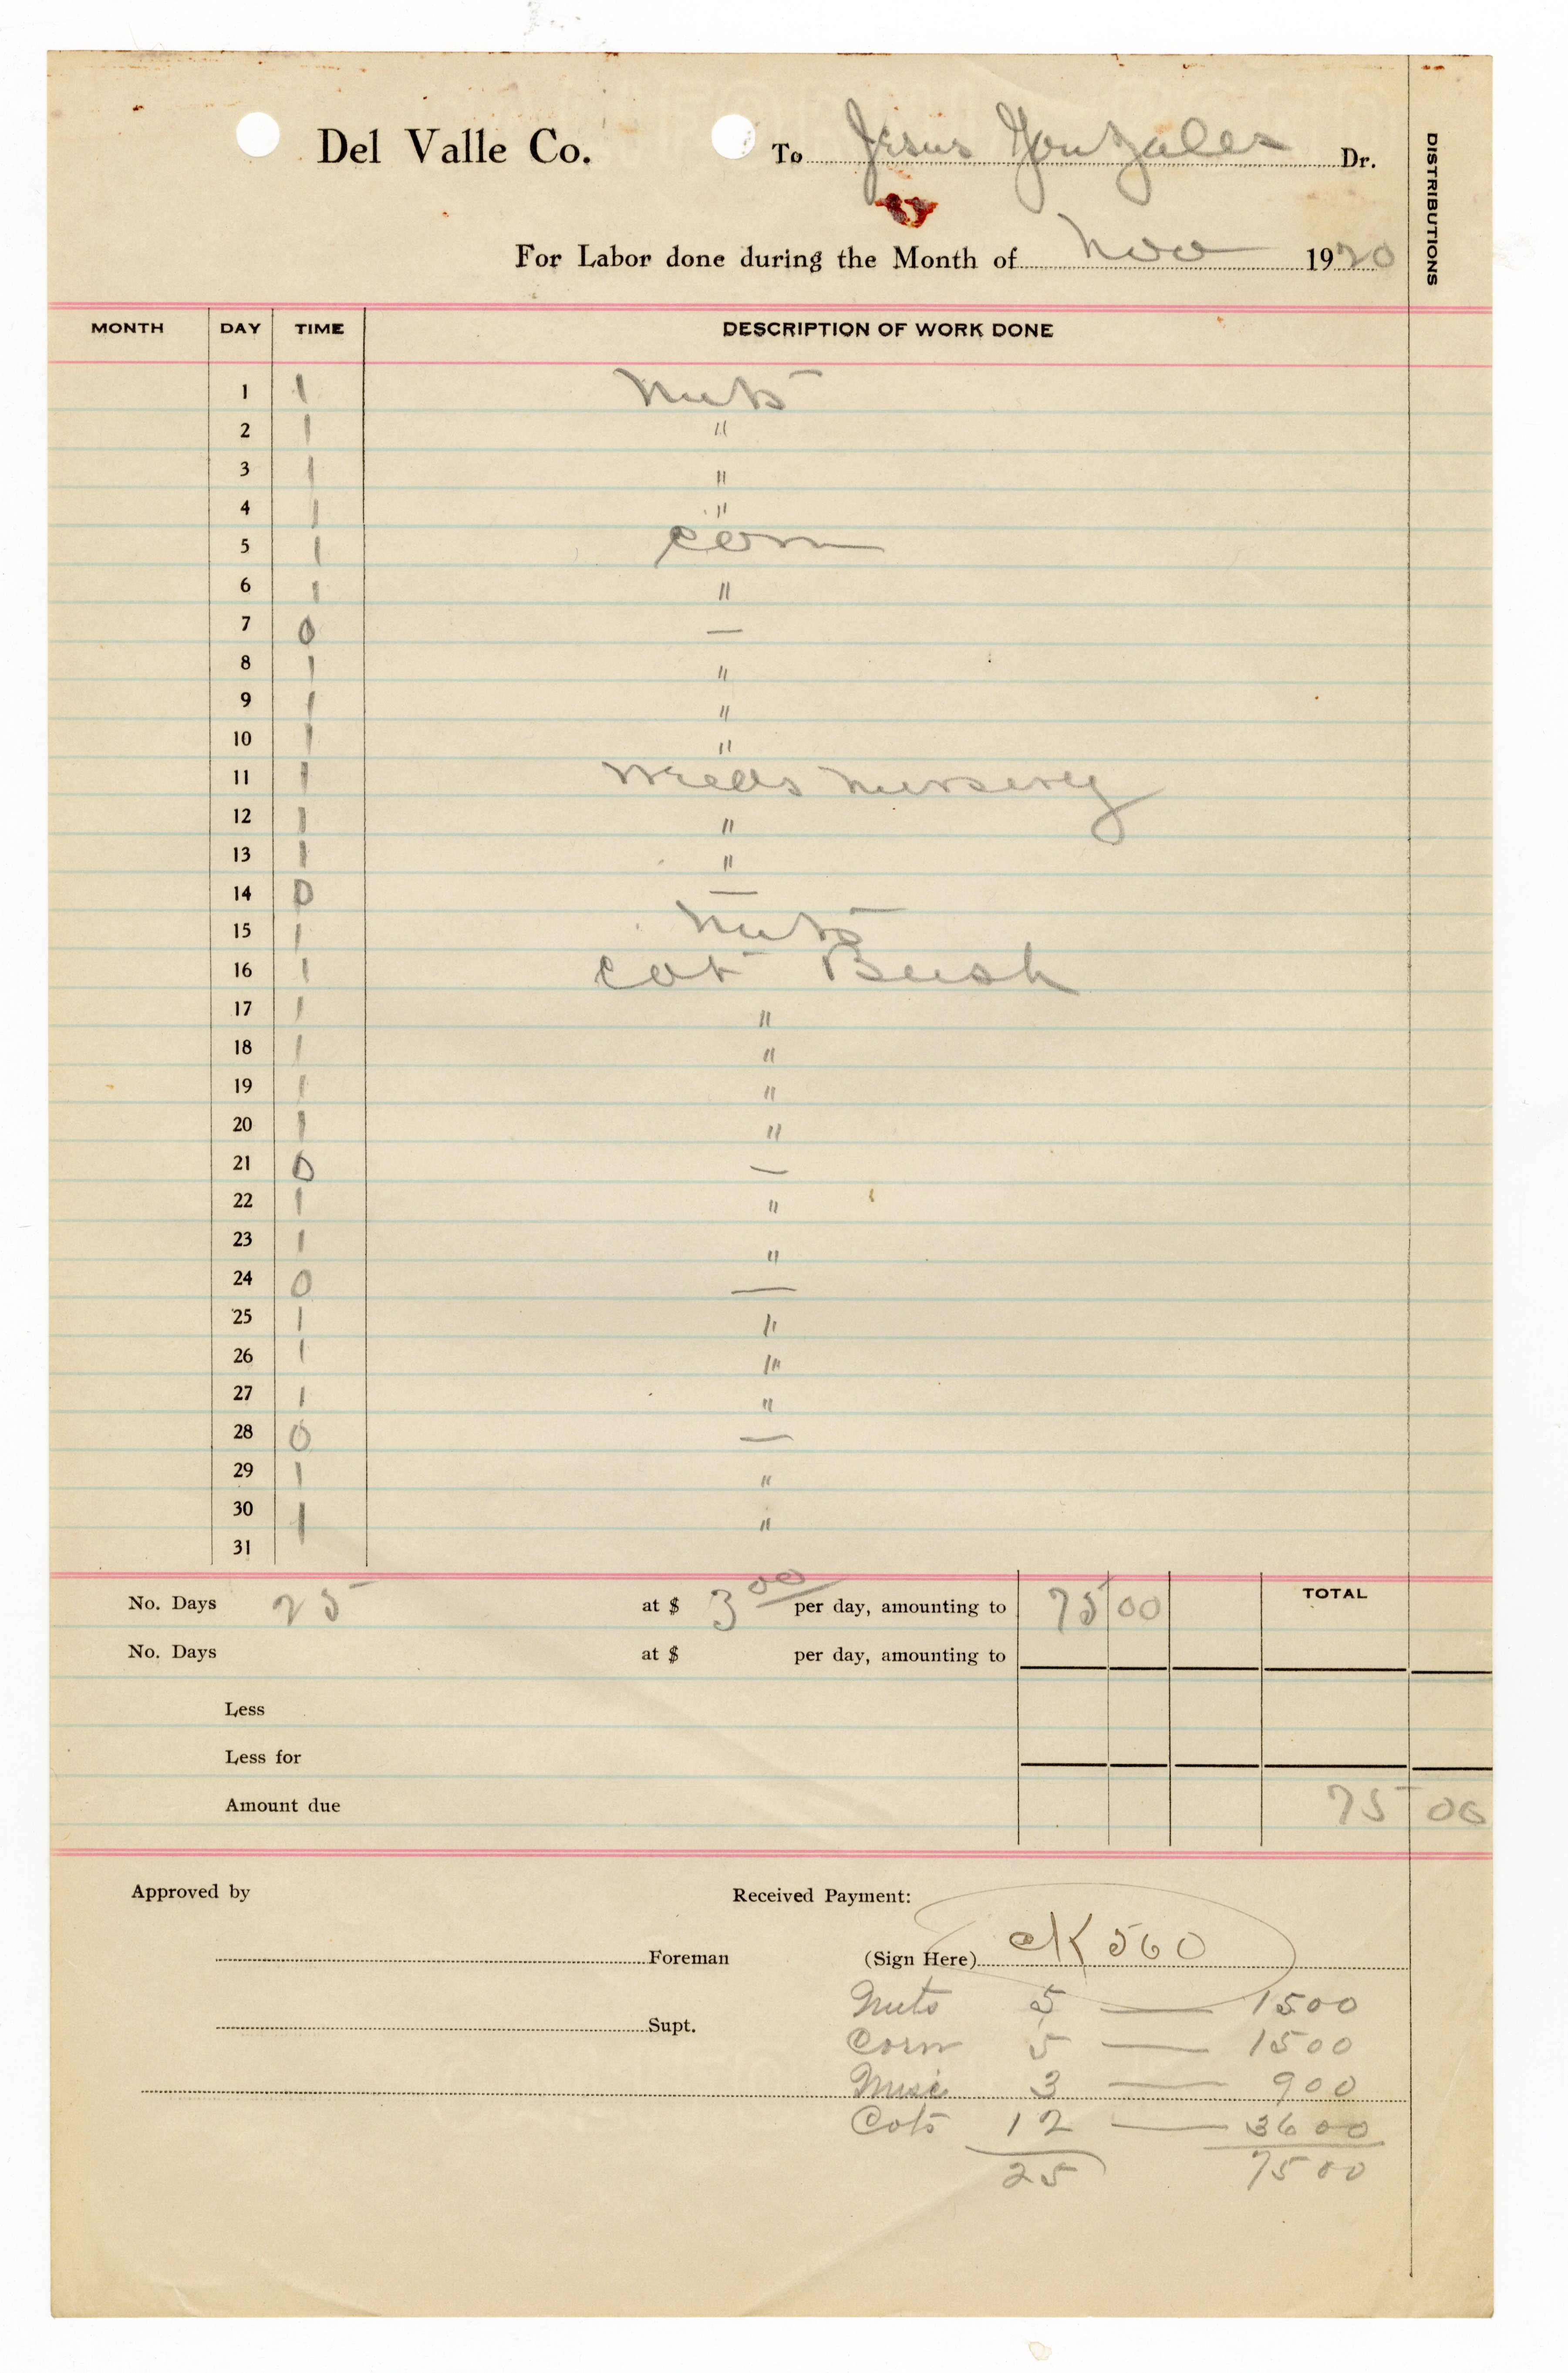 Del Valle Co. To Jesus Gonzales Dr.
DISTRIBUTIONS
For Labor done during the Month of Nov 1920
MONTH DAY TIME DESCRIPTION OF WORK DONE
1 1 Nuts
2 1 "
3 1 "
4 1 "
5 1 Corn
6 1 "
7 0 —
8 1 "
9 1 "
10 1 "
11 1 Weeds Nursery
12 1 "
13 1 "
14 0 —
15 1 Nuts
16 1 Cot Bush
17 1 "
18 1 "
19 1 "
20 1 "
21 0 —
22 1 "
23 1 "
24 0 —
25 1 "
26 1 "
27 1 "
28 0 —
29 1 "
30 1 "
31
No. Days 25 at $ 3 00 per day, amounting to 75 00 TOTAL
No. Days at $ per day, amounting to
Less
Less for
Amount due 75 00
Approved by Received Payment:
Foreman (Sign Here) CK 560
Nuts 5 — 1500
Supt.
Corn 5 — 1500
Misc 3 — 900
Cots 12 — 3600
25 7500